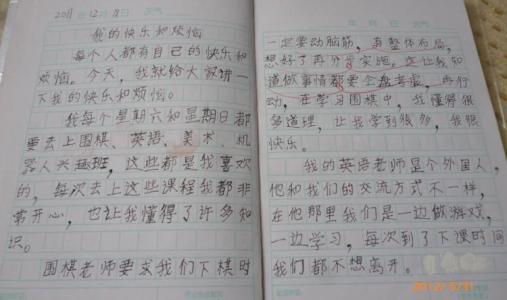 2011 年 12 月 11 日 天气
我的快乐和烦恼
每个人都有自己的快乐和
烦恼。今天，我就给大家讲一
下我的快乐和烦恼。
我每个星期六和星期日都
要去上围棋、英语、美术、机
器人兴趣班，这些都是我喜欢
的，每次去上这些课程我都非
常开心，也让我懂得了许多知
识。
围棋老师要求我们下棋时
年 月 日 天气
一定要动脑筋，有整体布局，
想好了再分步实施。这让我知
道做事情都要全盘考虑，再行
动，在学习围棋中，我懂得很
多道理，让我学到很多，我很
快乐。
我的英语老师是个外国人，
他和我们的交流方式不一样，
在他那里我们是一边做游戏，
一边学习，每次到了下课时间
我们都不想离开。
2012/5/31